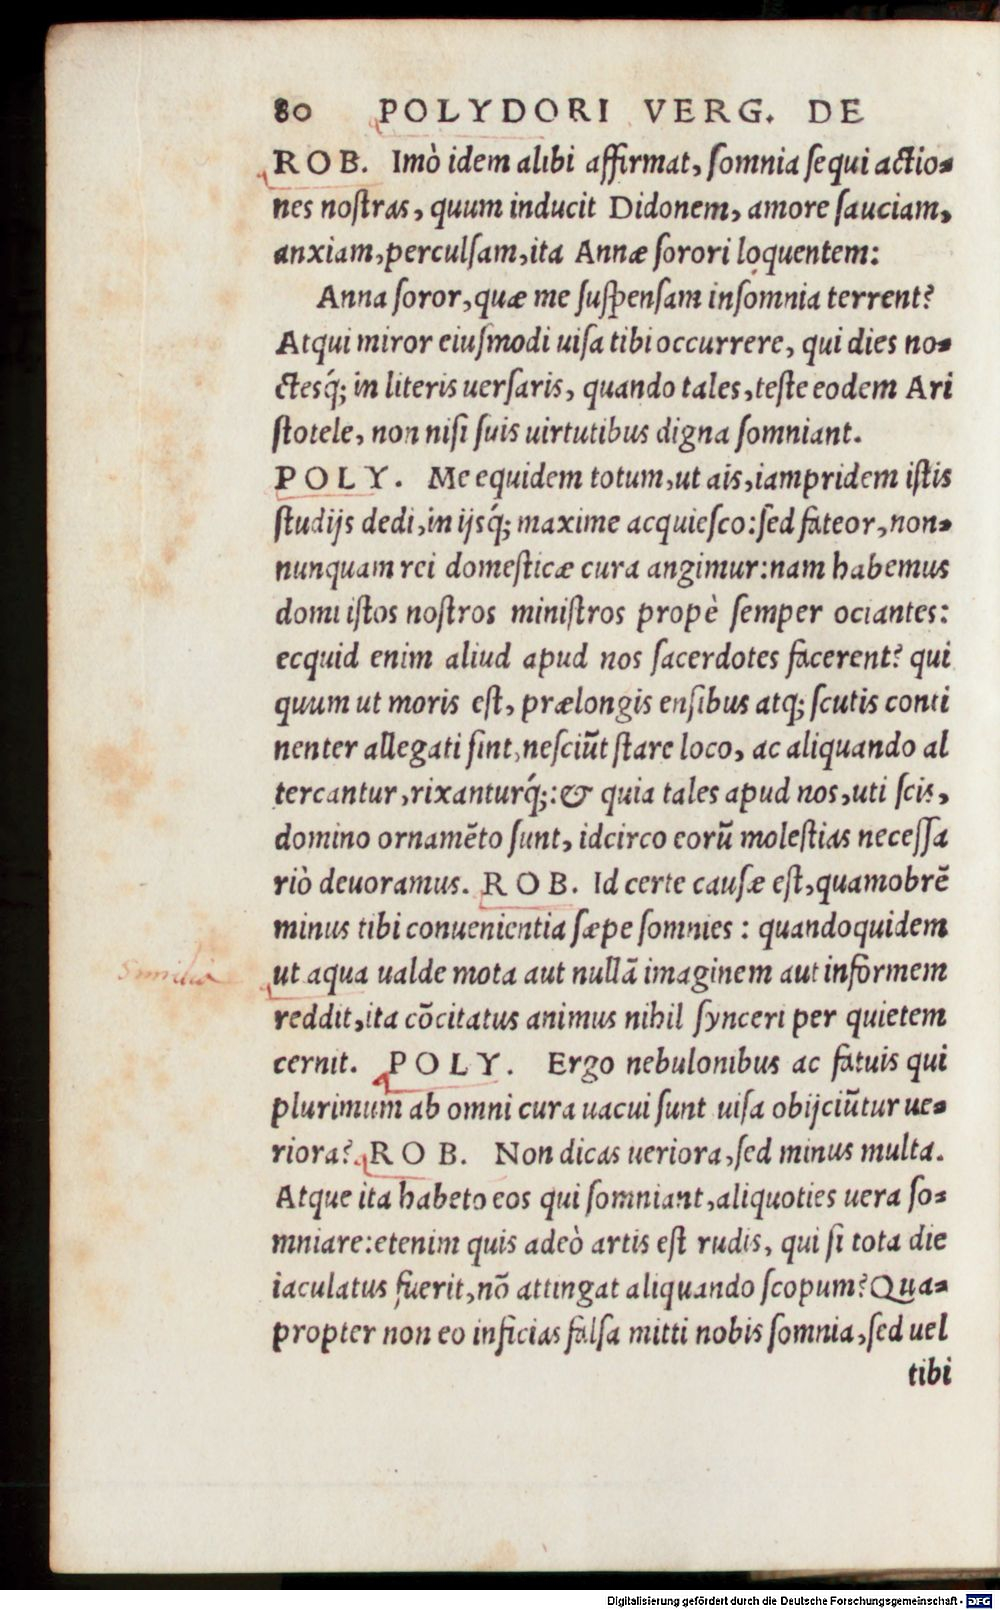 80 POLYDORI VERG. DE
ROB. Imò idem alibi affirmat, ſomnia ſequi actio-
nes noſtras, quum inducit Didonem, amore ſauciam,
anxiam, perculſam, ita Annæ ſorori loquentem:
Anna ſoror, quæ me ſuſpenſam inſomnia terrent?
Atqui miror eiuſmodi uiſa tibi occurrere, qui dies no-
ctesq́; in literis uerſaris, quando tales, teſte eodem Ari
ſtotele, non niſi ſuis uirtutibus digna ſomniant.
POLY. Me equidem totum, ut ais, iampridem iſtis
ſtudijs dedi, in ijsq́; maxime acquieſco: ſed fateor, non-
nunquam rei domeſticæ cura angimur: nam habemus
domi iſtos noſtros miniſtros propè ſemper ociantes:
ecquid enim aliud apud nos ſacerdotes facerent? qui
quum ut moris eſt, prælongis enſibus atq; ſcutis conti
nenter allegati ſint, neſciūt ſtare loco, ac aliquando al
tercantur, rixanturq́;: & quia tales apud nos, uti ſcis,
domino ornamēto ſunt, idcirco eorū moleſtias neceſſa
riò deuoramus. ROB. Id certe cauſæ eſt, quamobrē
minus tibi conuenientia ſæpe ſomnies: quandoquidem
Similia ut aqua ualde mota aut nullā imaginem aut informem
reddit, ita cōcitatus animus nihil ſynceri per quietem
cernit. POLY. Ergo nebulonibus ac fatuis qui
plurimum ab omni cura uacui ſunt uiſa obijciūtur ue-
riora? ROB. Non dicas ueriora, ſed minus multa.
Atque ita habeto eos qui ſomniant, aliquoties uera ſo-
mniare: etenim quis adeò artis eſt rudis, qui ſi tota die
iaculatus fuerit, nō attingat aliquando ſcopum? Qua-
propter non eo inficias falſa mitti nobis ſomnia, ſed uel
tibi
Digitalisierung gefördert durch die Deutsche Forschungsgemeinschaft - DFG